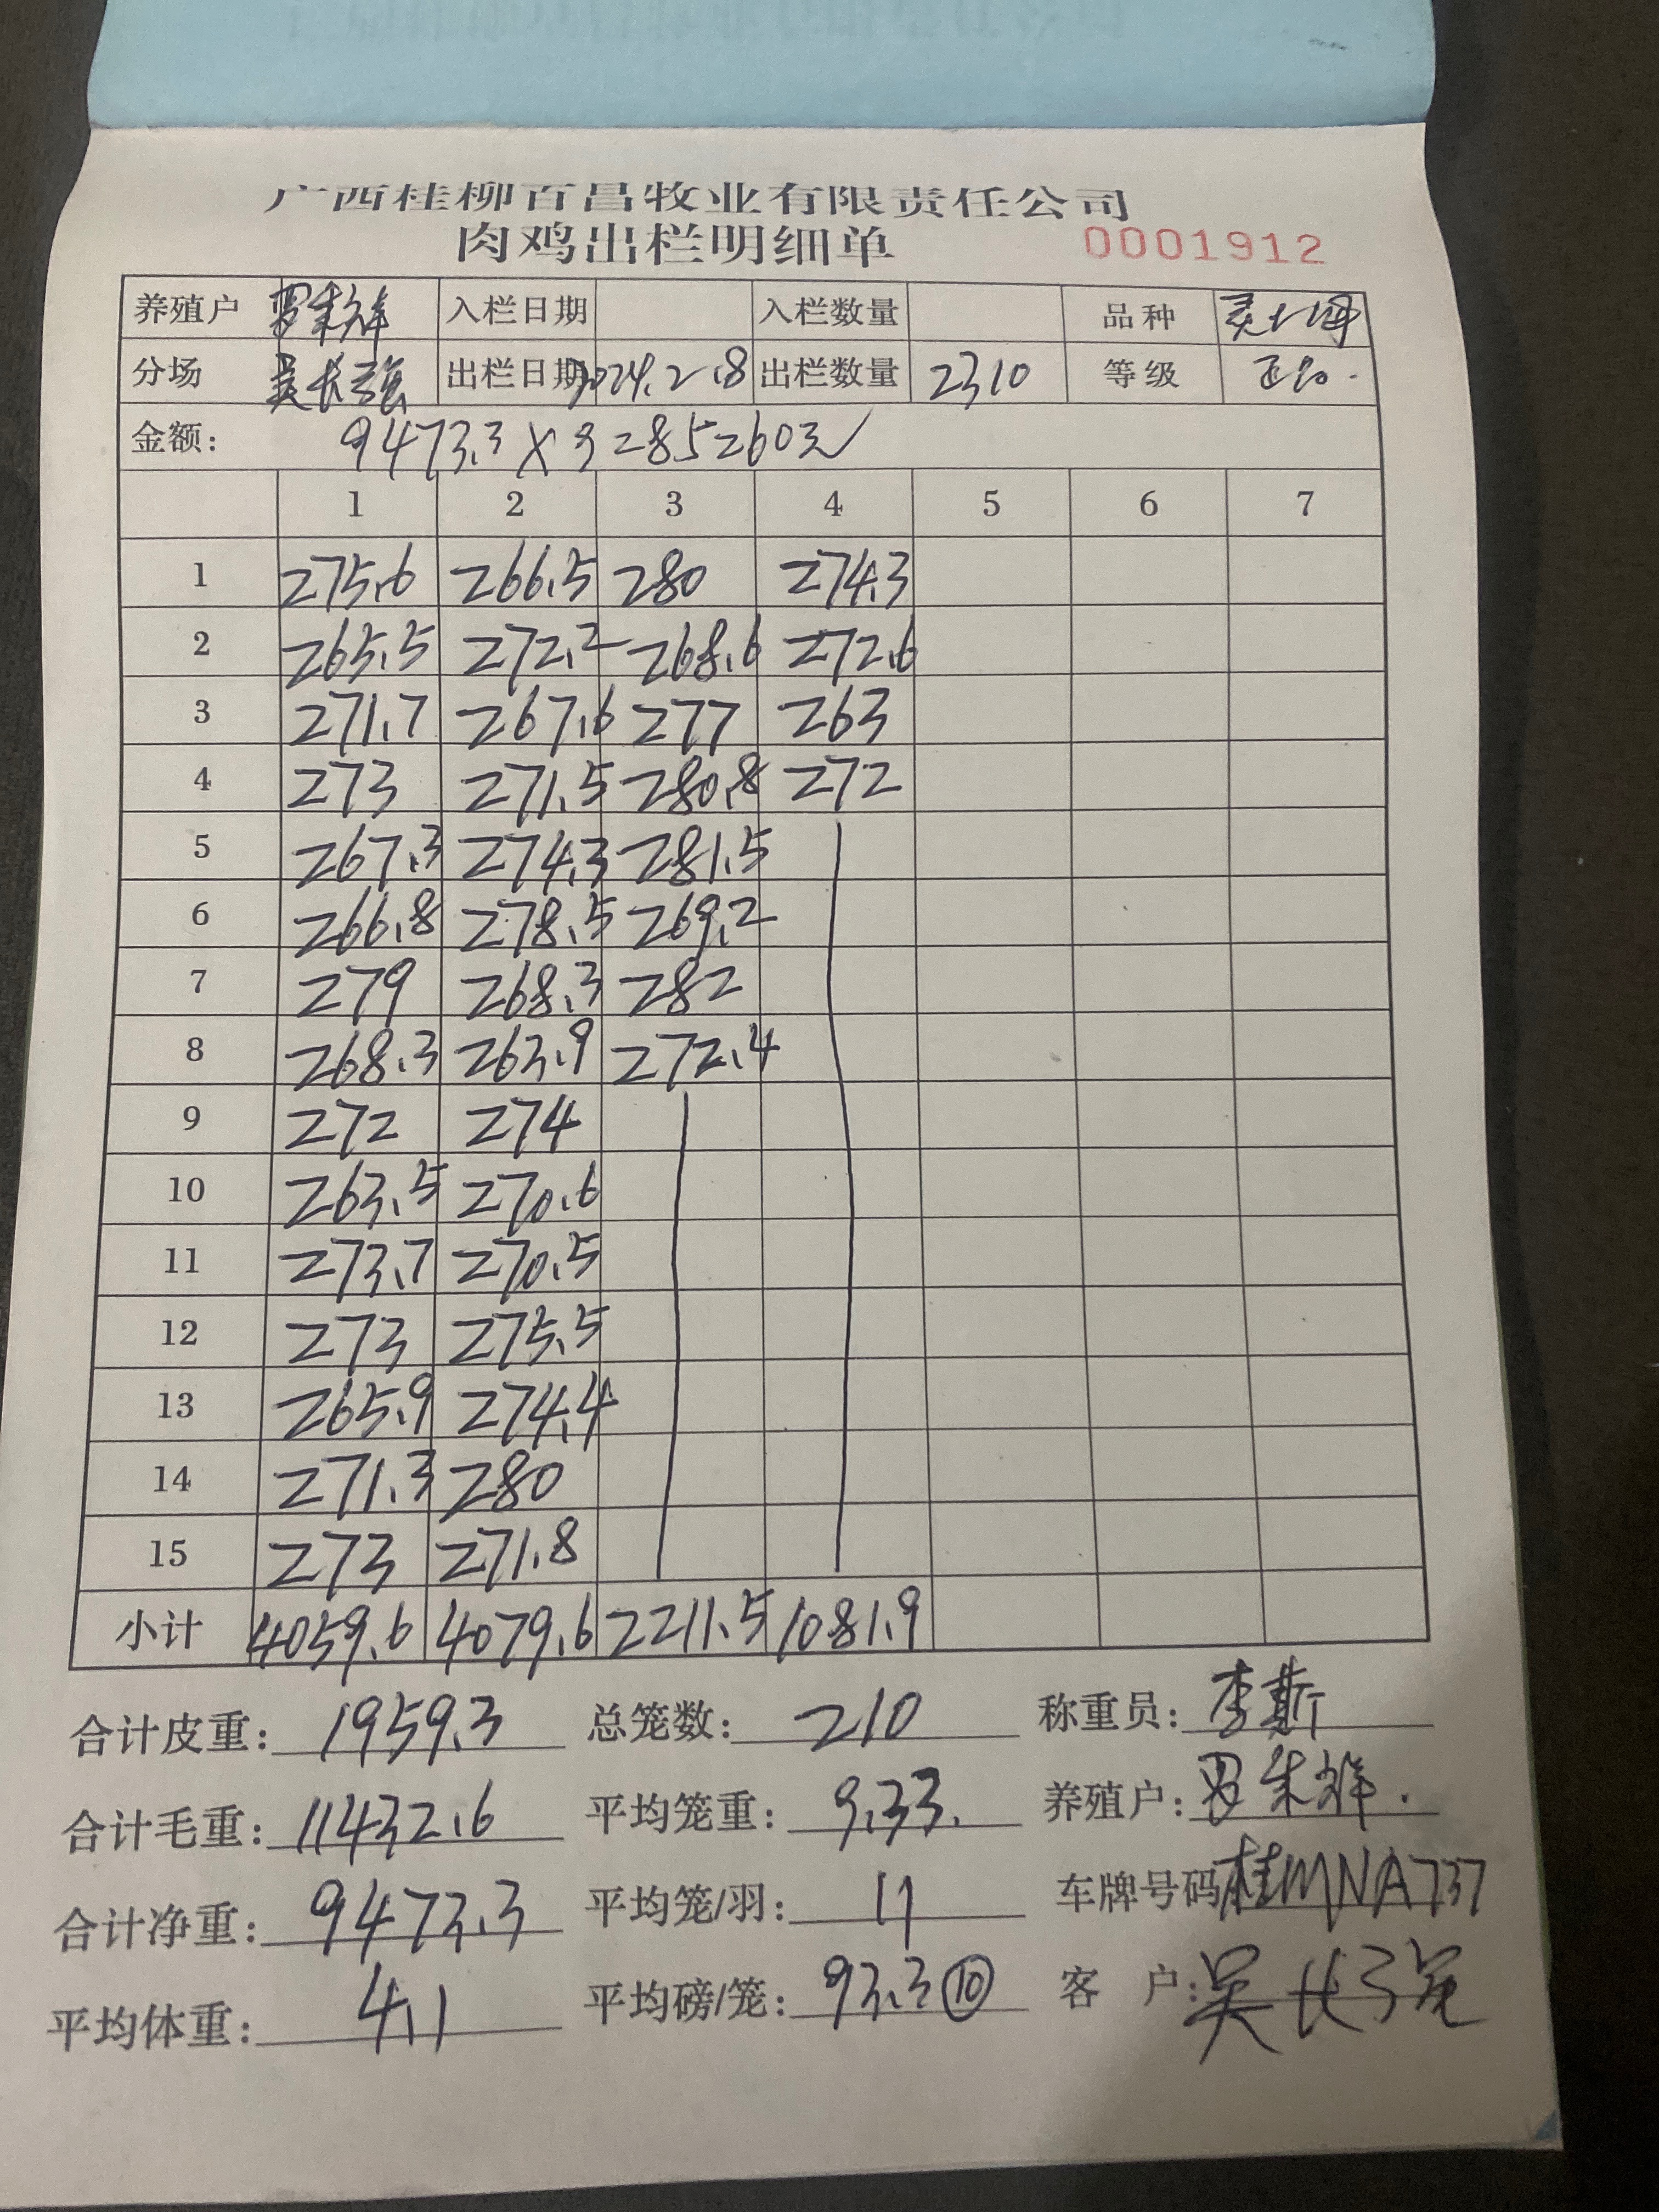 广西桂柳百昌牧业有限责任公司
肉鸡出栏明细单 0001912
养殖户 罗朱祥 入栏日期 入栏数量 品种
分场 吴长强 出栏日期 2024.2.8 出栏数量 2310 等级
金额: 9473.3×9=85260元
1 2 3 4 5 6 7
1 275.6 266.5 280 274.3
2 265.5 272.2 268.6 272.6
3 271.7 267.6 277 263
4 273 271.5 280.8 272
5 267.3 274.3 281.5
6 266.8 278.5 269.2
7 279 268.3 282
8 268.3 263.9 272.4
9 272 274
10 263.5 270.6
11 273.7 270.5
12 273 275.5
13 265.9 274.4
14 271.3 280
15 273 271.8
小计 4059.6 4079.6 2211.5 1081.9
合计皮重: 1959.3 总笼数: 210 称重员: 李斯
合计毛重: 11432.6 平均笼重: 9.33. 养殖户: 罗朱祥.
合计净重: 9473.3 平均笼/羽: 11 车牌号码 桂MNA737
平均体重: 4.1 平均磅/笼: 93.3⑩ 客户: 吴长强